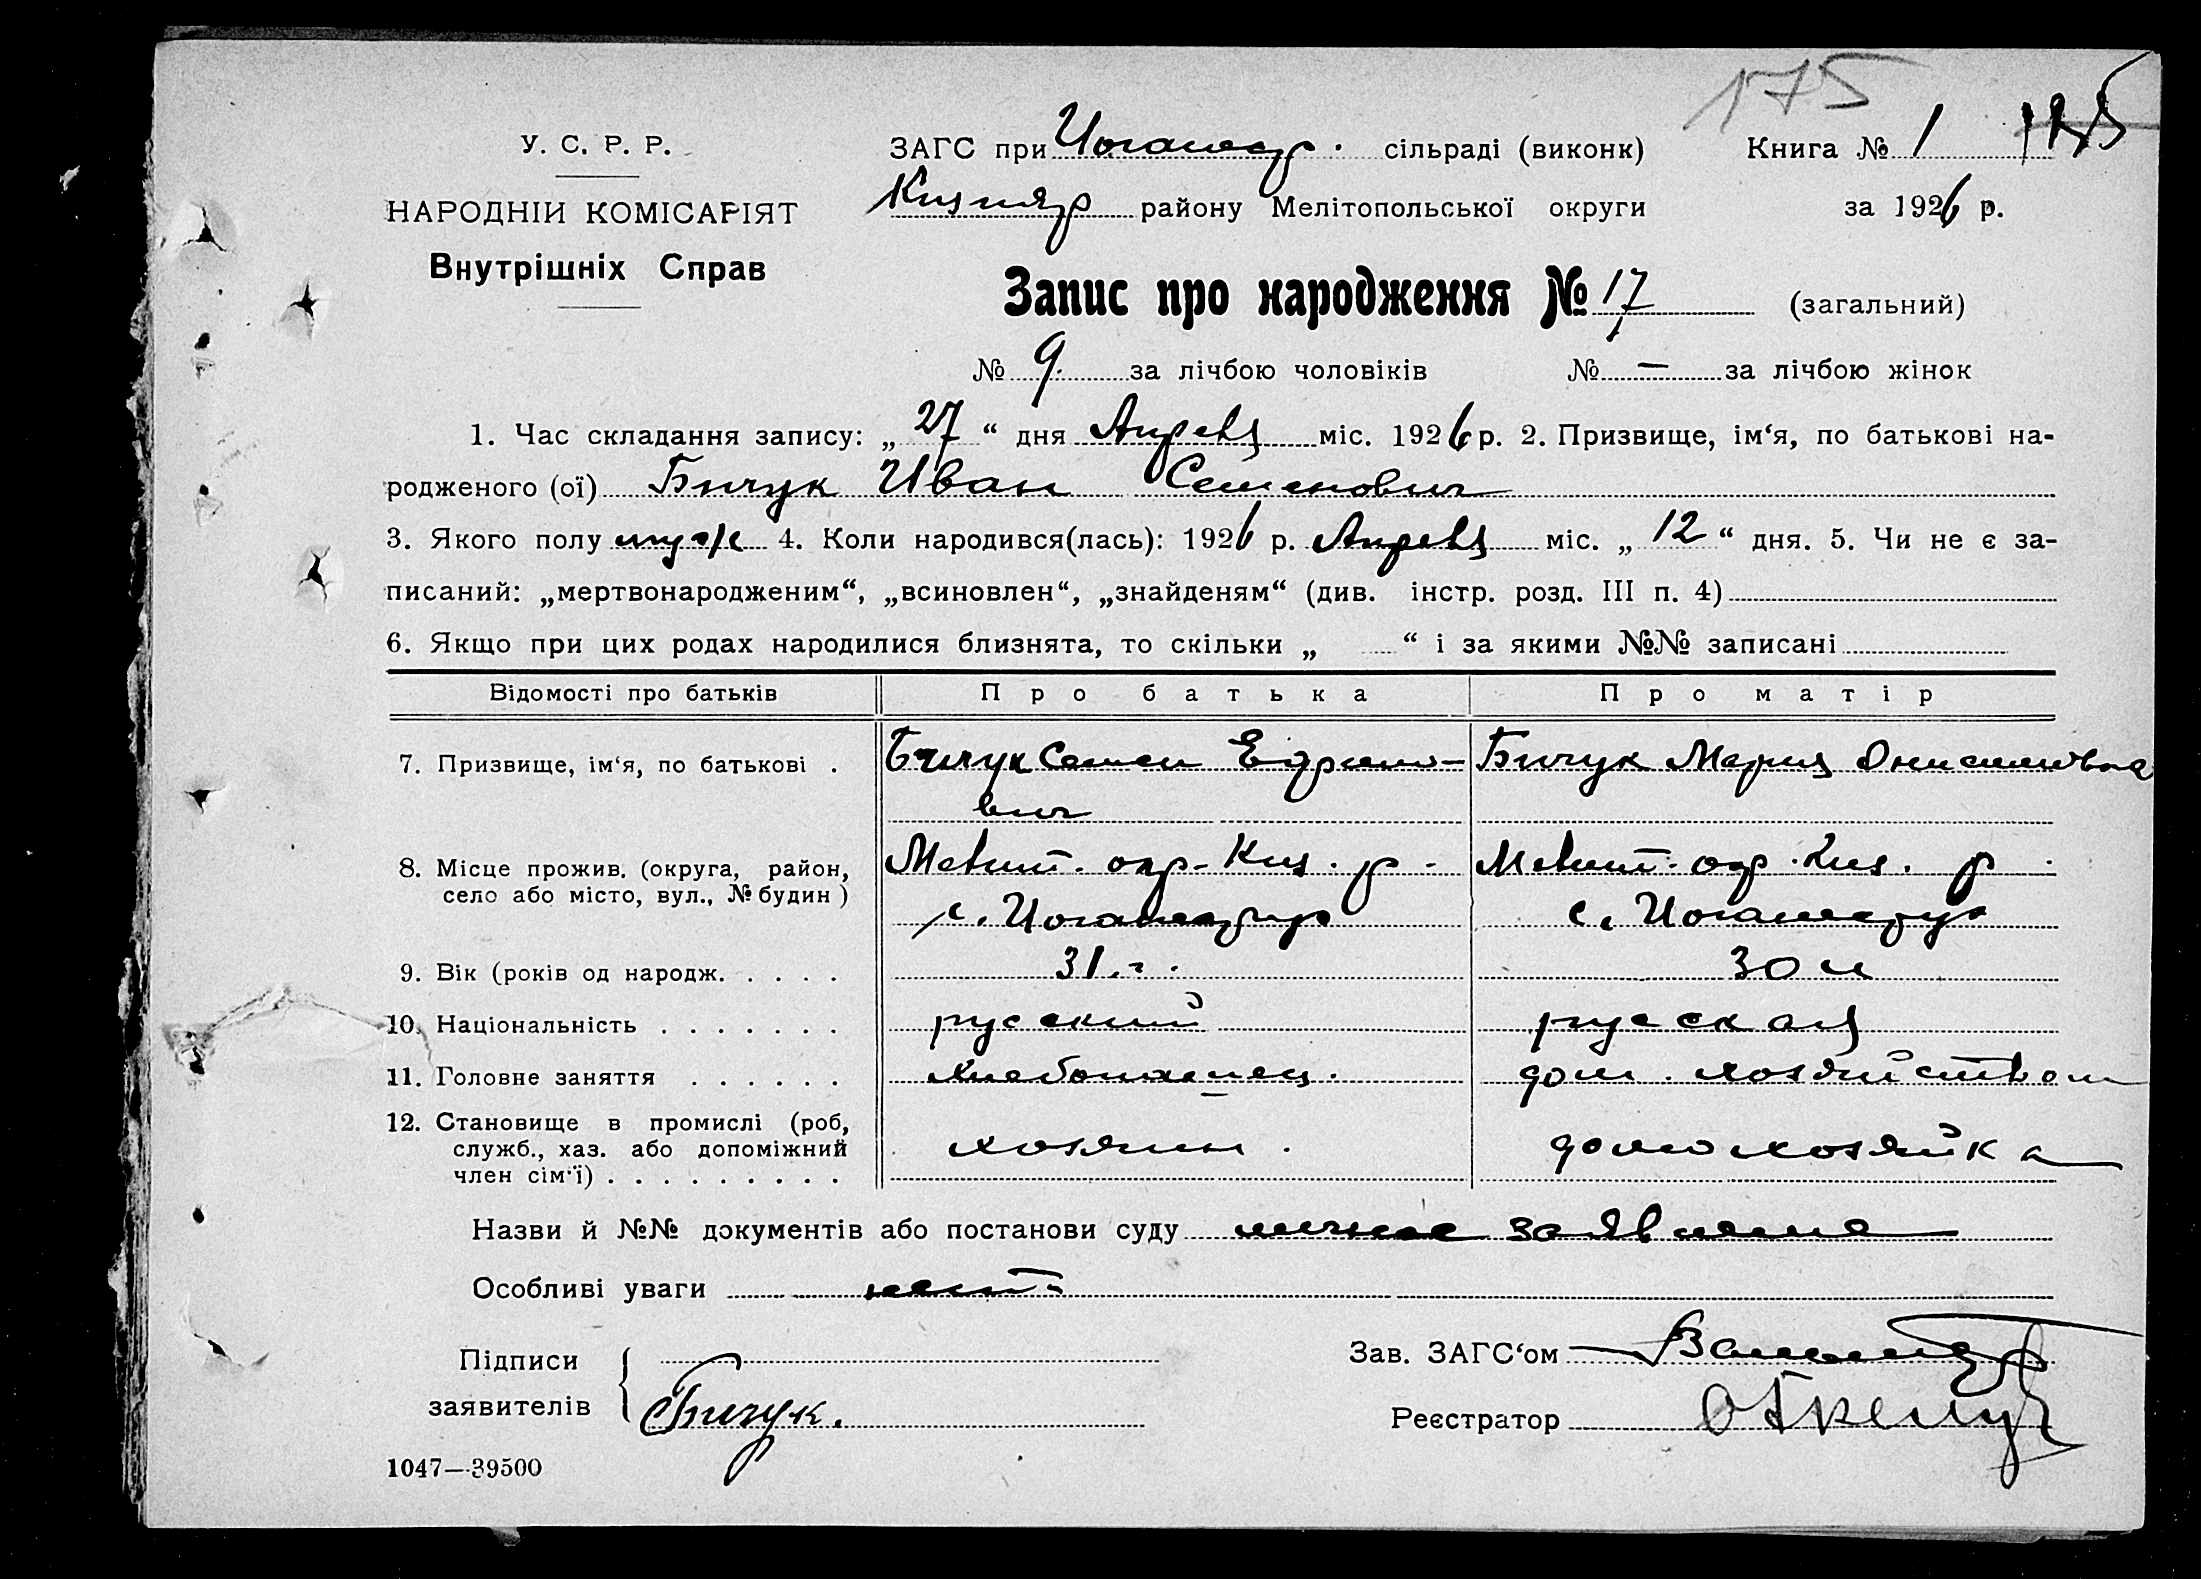 175
У. С. Р. Р.
ЗАГС при сільраді (виконк) Книга № 1
НАРОДНІЙ КОМІСАРІЯТ
району Мелітопольської округи за 1926 р.
Внутрішніх Справ
Запис про народження № 17 (загальний)
№ 9. за лічбою чоловіків № — за лічбою жінок
1. Час складання запису: „ 27 “ дня Апреля міс. 1926 р. 2. Призвище, ім‘я, по батькові на-
родженого (ої) Бичук Иван Семенович
3. Якого полу муж 4. Коли народився(лась): 1926 р. Апреля міс. „ 12 “ дня. 5. Чи не є за-
писаний: „мертвонародженим“, „всиновлен“, „знайденям“ (див. інстр. розд. III п. 4)
6. Якщо при цих родах народилися близнята, то скільки „ “ і за якими №№ записані
Відомості про батьків Про батька Про матір
7. Призвище, ім‘я, по батькові . Бичук Семен Бичук Мария Онисимовна
вич
8. Місце прожив. (округа, район, Мелит. окр. Киз. р. Мелит. окр. Киз. р.
село або місто, вул., № будин )
с. с.
9. Вік (років од народж. . . . . 31 30
10. Національність . . . . . . . русский русская
11. Головне заняття . . . . . . хлебопашец. дом. хозяйством
12. Становище в промислі (роб,
служб., хаз. або допоміжний хозяин. домохозяйка
член сім‘ї) . . . . . . . . .
Назви й №№ документів або постанови суду личное заявление
Особливі уваги нет
Підписи Зав. ЗАГС‘ом
заявителів Бичук. Реєстратор
1047—39500